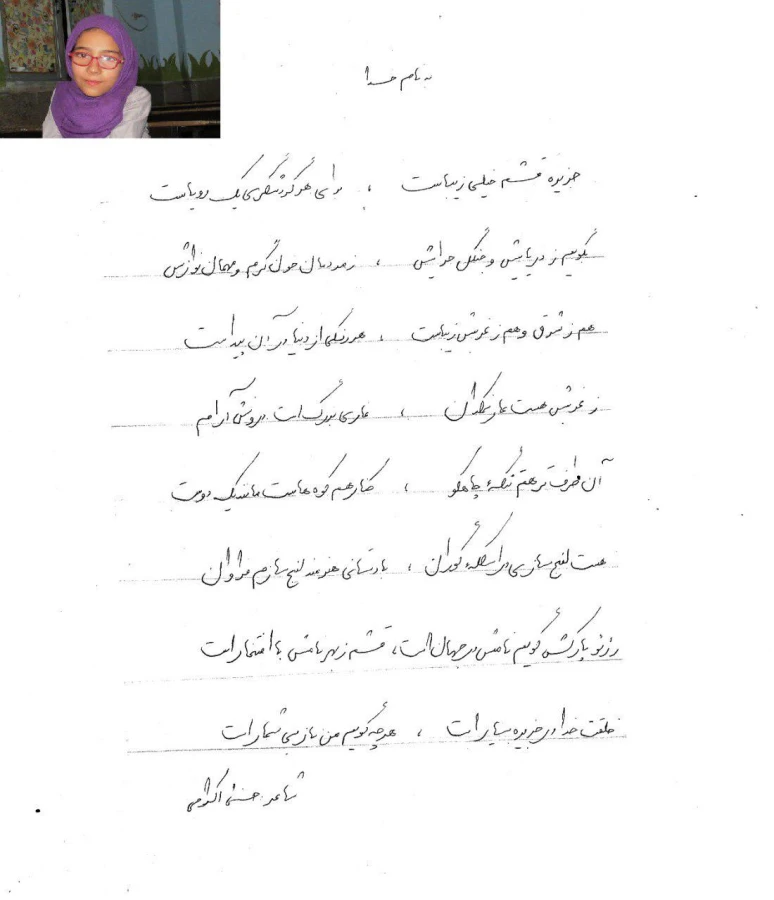 به نام خدا
جزیره قشم خیلی زیباست ، برای هر گردشگری یک رویاست
گویم ز دریایش و جنگل حرایش ، ز مردمان خون گرم و مهمان نوازش
هم ز شرق و هم ز غربش زیباست ، هر رنگی از دنیا در آن پیداست
ز غربش هست غار نمکدان ، غاری بزرگ است درونش آرام
آن طرف تر هم تنگه چاهکو ، کنار هم کوه هاست مانند یک دوست
هست لنج سازی در اسکله گوران ، با دستانی هنرمند لنج سازم فراوان
ز ژئوپارکش گویم نامش در جهان است، قشم ز بهر نامش با افتخار است
خلقت خدا در جزیره بسیار است ، هر چه گویم من باز بی شمار است
شاعر: اکرامی